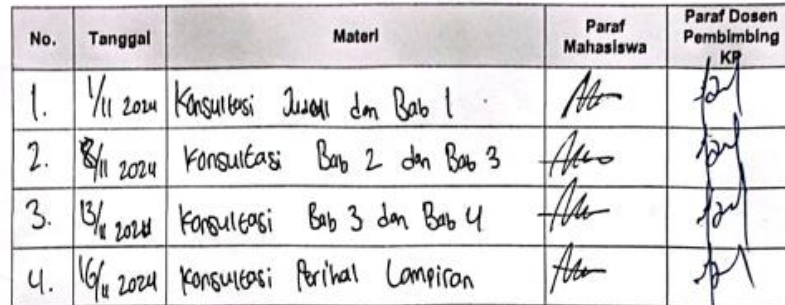 No. Tanggal Materi Paraf Mahasiswa Paraf Dosen Pembimbing KP
1. 1/11 2024 Konsultasi Judul dan Bab 1
2. 8/11 2024 Konsultasi Bab 2 dan Bab 3
3. 13/11 2024 Konsultasi Bab 3 dan Bab 4
4. 16/11 2024 Konsultasi Perihal Lampiran